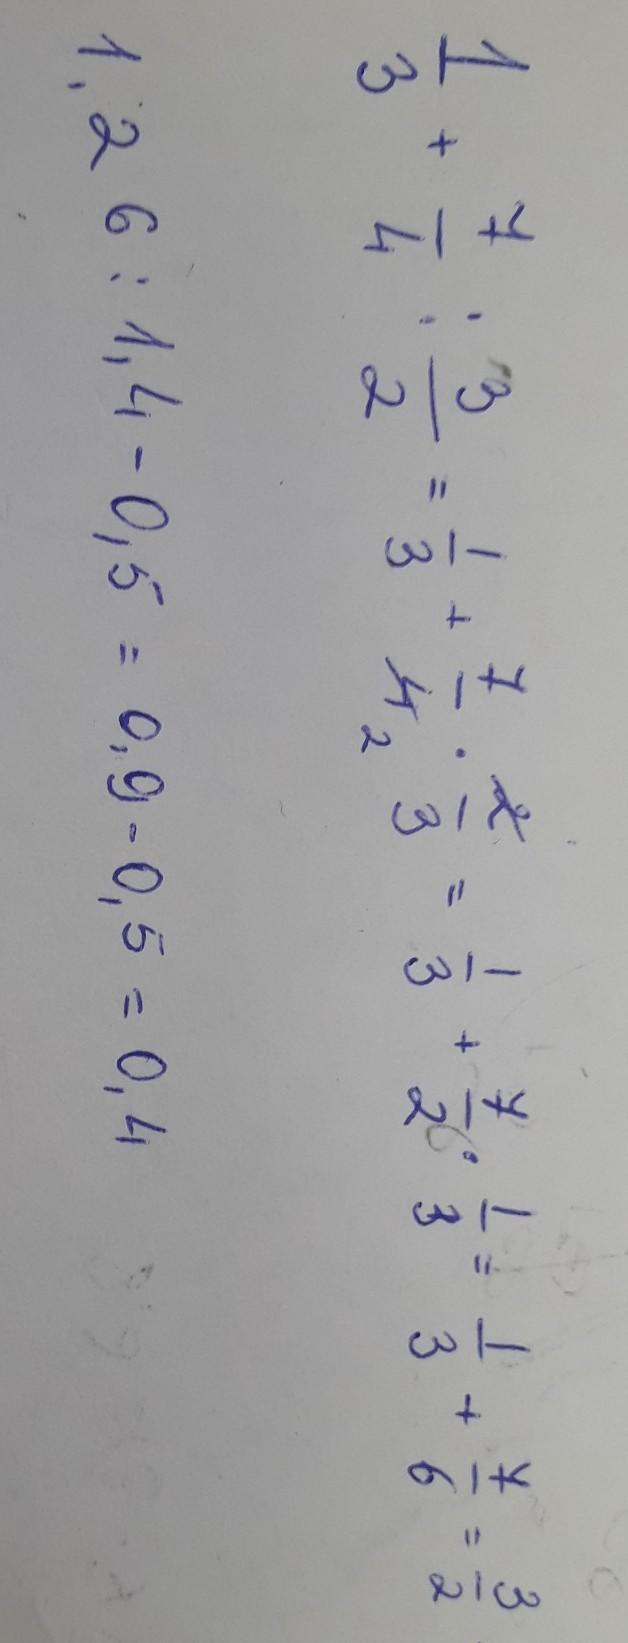 1/3 + 7/4 : 3/2 = 1/3 + 7/4 2 · 2/3 = 1/3 + 7/2 · 1/3 = 1/3 + 7/6 = 3/2
1,26 : 1,4 - 0,5 = 0,9 - 0,5 = 0,4